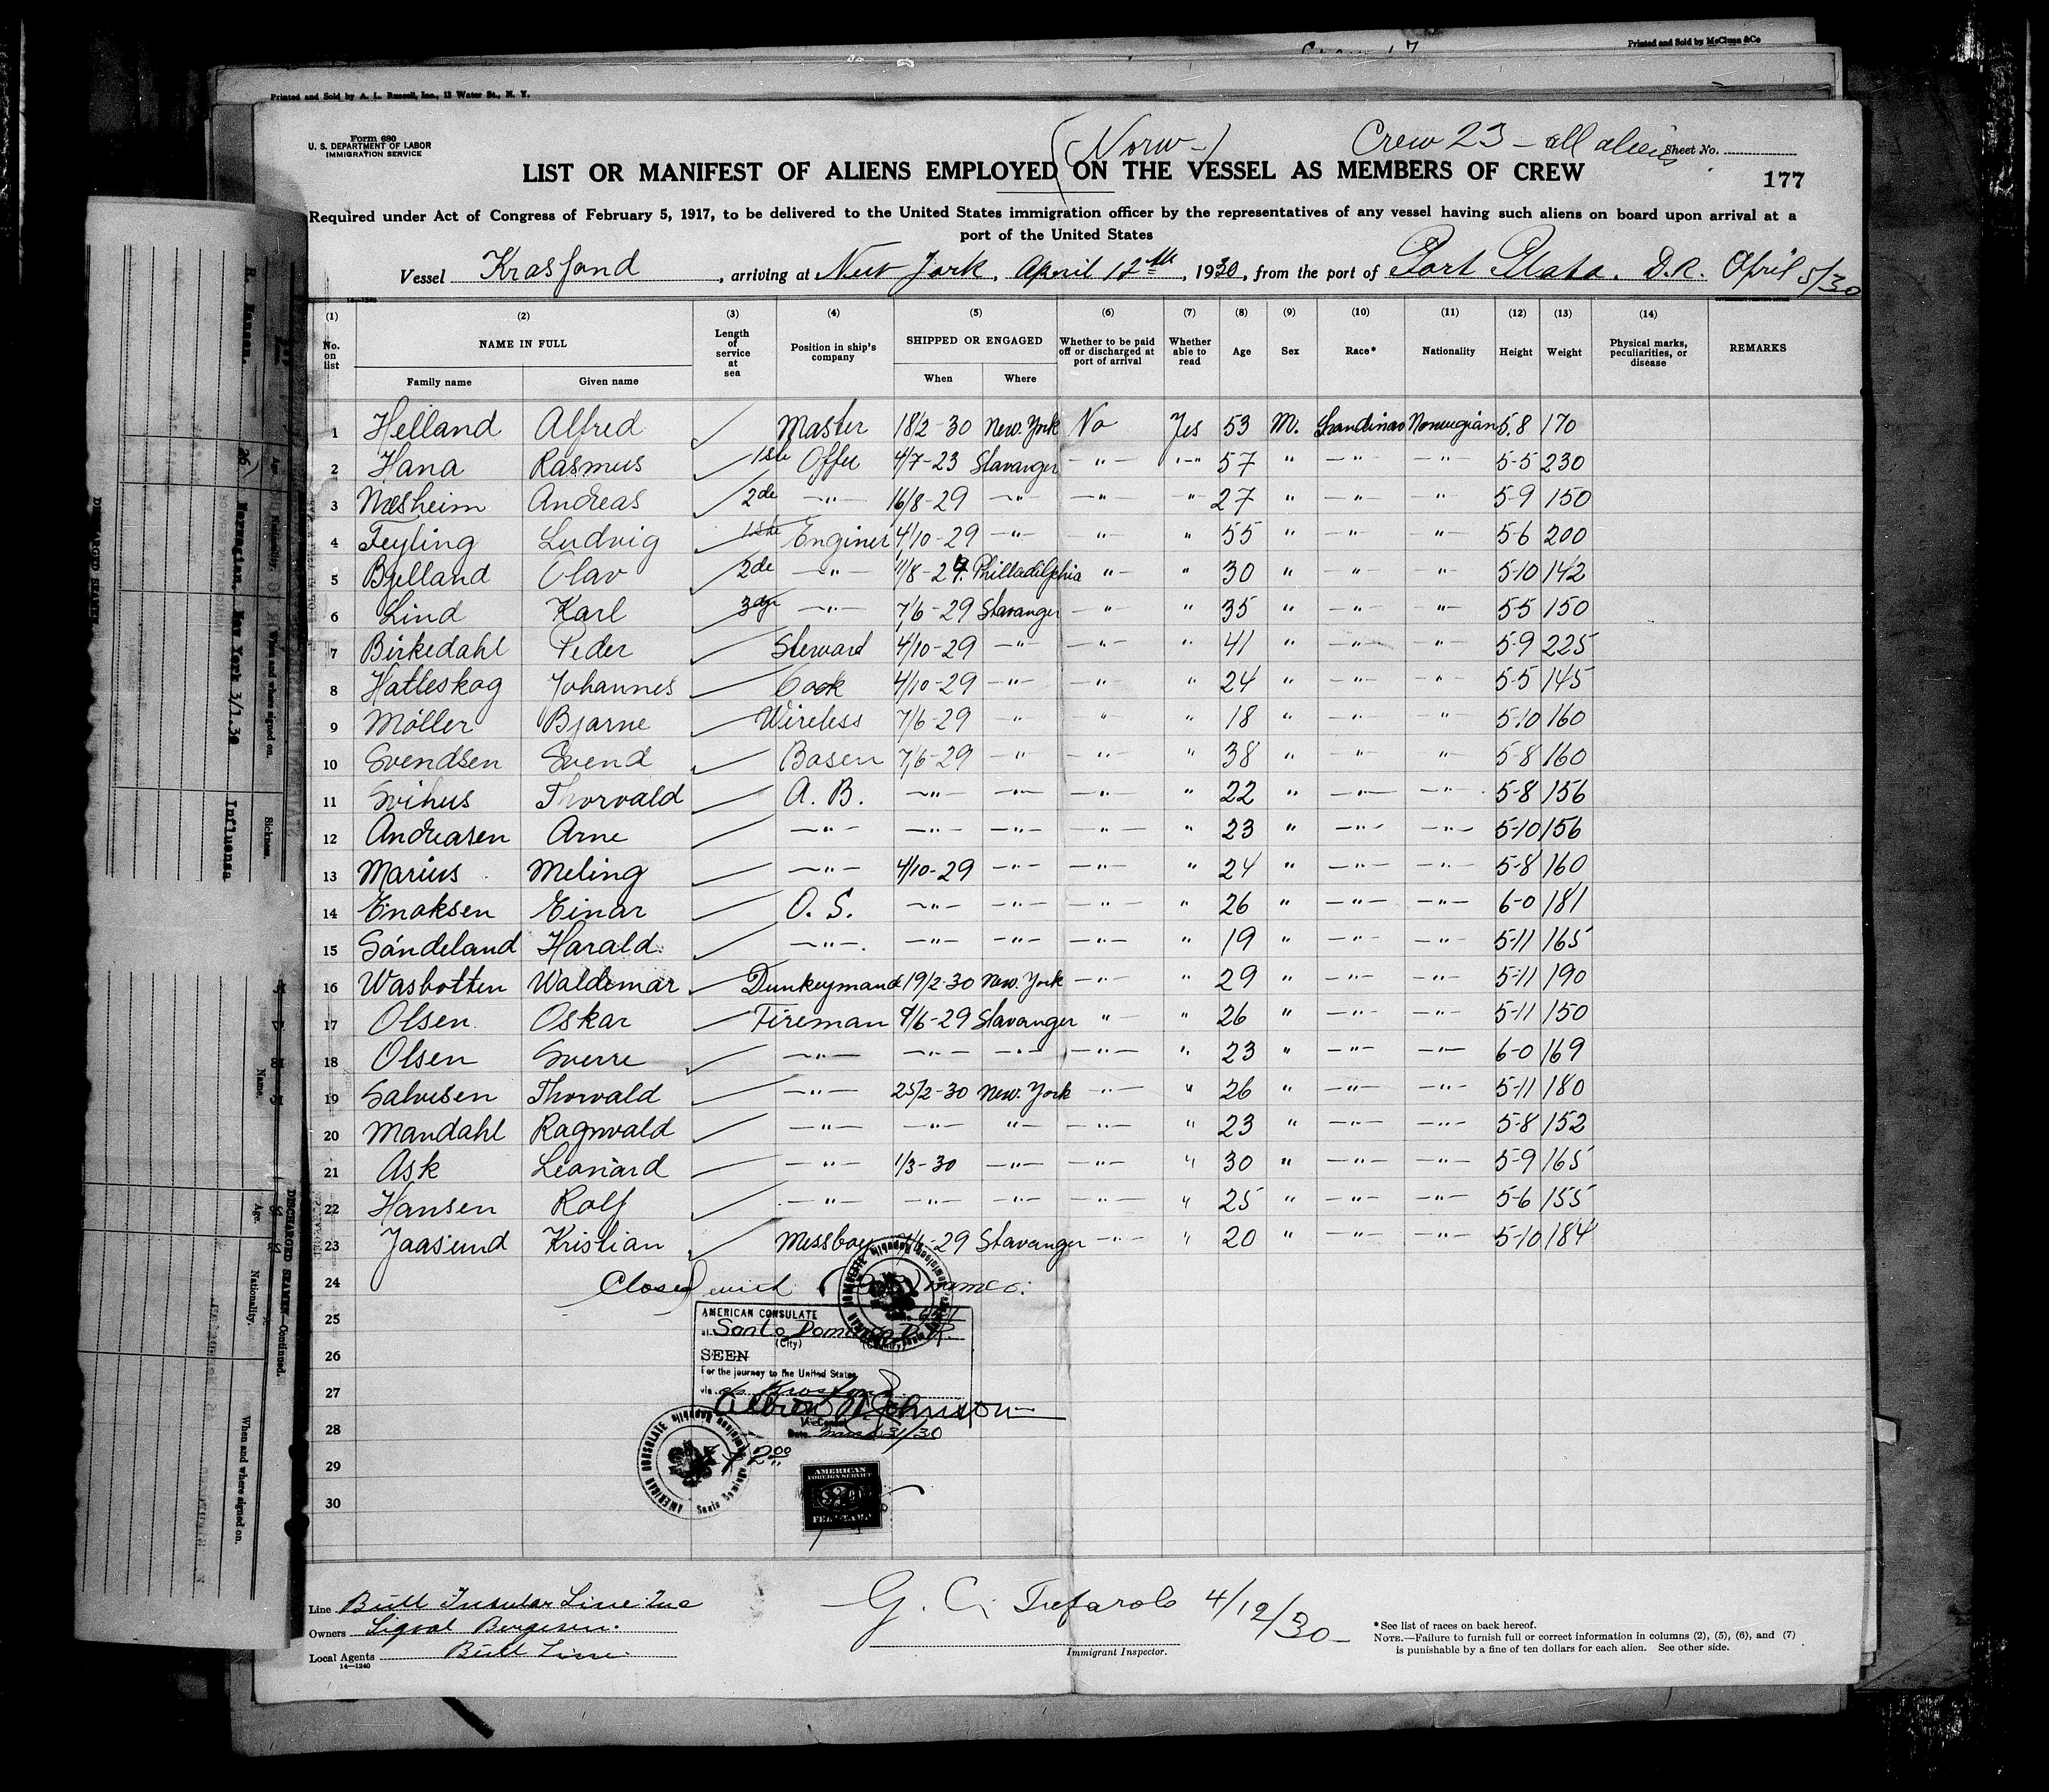 Printed and Sold by McClunn & Co
Printed and Sold by A. L. Russell, Inc., 12 Water St., N. Y.
Form 680
U. S. DEPARTMENT OF LABOR
IMMIGRATION SERVICE
(Norw-)
Crew 23 - all aliens
Sheet No.
LIST OR MANIFEST OF ALIENS EMPLOYED ON THE VESSEL AS MEMBERS OF CREW
177
Required under Act of Congress of February 5, 1917, to be delivered to the United States immigration officer by the representatives of any vessel having such aliens on board upon arrival at a
port of the United States
Vessel Krasfond, arriving at New York, April 12th, 1930, from the port of Port Plata. D.R. April 5/30
14-1240
(1) (2) (3) (4) (5) (6) (7) (8) (9) (10) (11) (12) (13) (14)
No. on list NAME IN FULL Length of service at sea Position in ship's company SHIPPED OR ENGAGED Whether to be paid off or discharged at port of arrival Whether able to read Age Sex Race* Nationality Height Weight Physical marks, peculiarities, or disease REMARKS
Family name Given name When Where
1 Helland Alfred Master 18/2-30 New.York No Yes 53 M. Scandinav Norwegian 5.8 170
2 Hana Rasmus 1ste Offic 4/7-23 Stavanger -"- -"- 57 " -"- -"- 5-5 230
3 Næsheim Andreas 2de -"- 16/8-29 -"- -"- -"- 27 " -"- -"- 5-9 150
4 Feyling Ludvig 1ste Enginer 4/10-29 -"- -"- " 55 " -"- -"- 5-6 200
5 Bjelland Olav 2de -"- 11/8-27. Philladelphia "- " 30 " -"- -"- 5-10 142
6 Lind Karl 3dje -"- 7/6-29 Stavanger -"- " 35 " -"- -"- 5-5 150
7 Birkedahl Peder Steward 4/10-29 -"- -"- " 41 " -"- -"- 5-9 225
8 Hatleskog Johannes Cook 4/10-29 -"- -"- " 24 " -"- -"- 5-5 145
9 Möller Bjarne Wireless 7/6-29 " -"- " 18 " -"- -"- 5-10 160
10 Svendsen Svend Bosen 7/6-29 " -"- " 38 " -"- " 5-8 160
11 Svihus Thorvald A. B. -"- -"- -"- " 22 " -"- -"- 5-8 156
12 Andreasen Arne -"- -"- -"- -"- " 23 " -"- -"- 5-10 156
13 Marius Meling -"- 4/10-29 -"- -"- " 24 " -"- -"- 5-8 160
14 Enoksen Einar O. S. -"- -"- -"- " 26 " -"- -"- 6-0 181
15 Sandeland Harald -"-. -"- -"- -"- " 19 " -"- -"- 5-11 165
16 Wasbotten Waldemar Dunkeymand 19/2-30 New.York -"- 29 " -"- -"- 5-11 190
17 Olsen Oskar Fireman 7/6-29 Stavanger "- " 26 " -"- -"- 5-11 150
18 Olsen Sverre -"- -"- -"- -"- " 23 " -"- -"- 6-0 169
19 Salvesen Thorvald -"- 25/2-30 New.York -"- " 26 " -"- -"- 5-11 180
20 Mandahl Ragnvald -"- -"- "- -"- " 23 " -"- -"- 5-8 152
21 Ask Leonard -"- 1/3-30 -"- -"- " 30 " -"- -"- 5-9 165
22 Hansen Rolf -"- -"- -"- -"- " 25 " -"- -"- 5-6 155
23 Jaasund Kristian Messboy 7/6-29 Stavanger -"- " 20 " -"- -"- 5-10 184
24 Closed with (23) names.
25 AMERICAN CONSULATE
at Santo Domingo D.R.
(City) (Country)
26 SEEN
For the journey to the United States
27 via
Johnson
28 Vice Consul
Date March 31/30
29 $2.00
30
AMERICAN CONSULATE Santo Domingo Dominican Republic
AMERICAN FOREIGN SERVICE
FEE STAMP
Line Bull Insular Line Inc
Owners Sigval Bergesen.
Local Agents Bull Line
14-1240
G. C. 4/12/30
Immigrant Inspector.
*See list of races on back hereof.
NOTE.—Failure to furnish full or correct information in columns (2), (5), (6), and (7)
is punishable by a fine of ten dollars for each alien. See other side.
R. Hansen. 26 Norwegian. New York 3/1.30 Influensa
Age. Nationality. When and where signed on. Sickness.
DISCHARGED SEAMEN—Continued.
Name. Age. Nationality. When and where signed on.